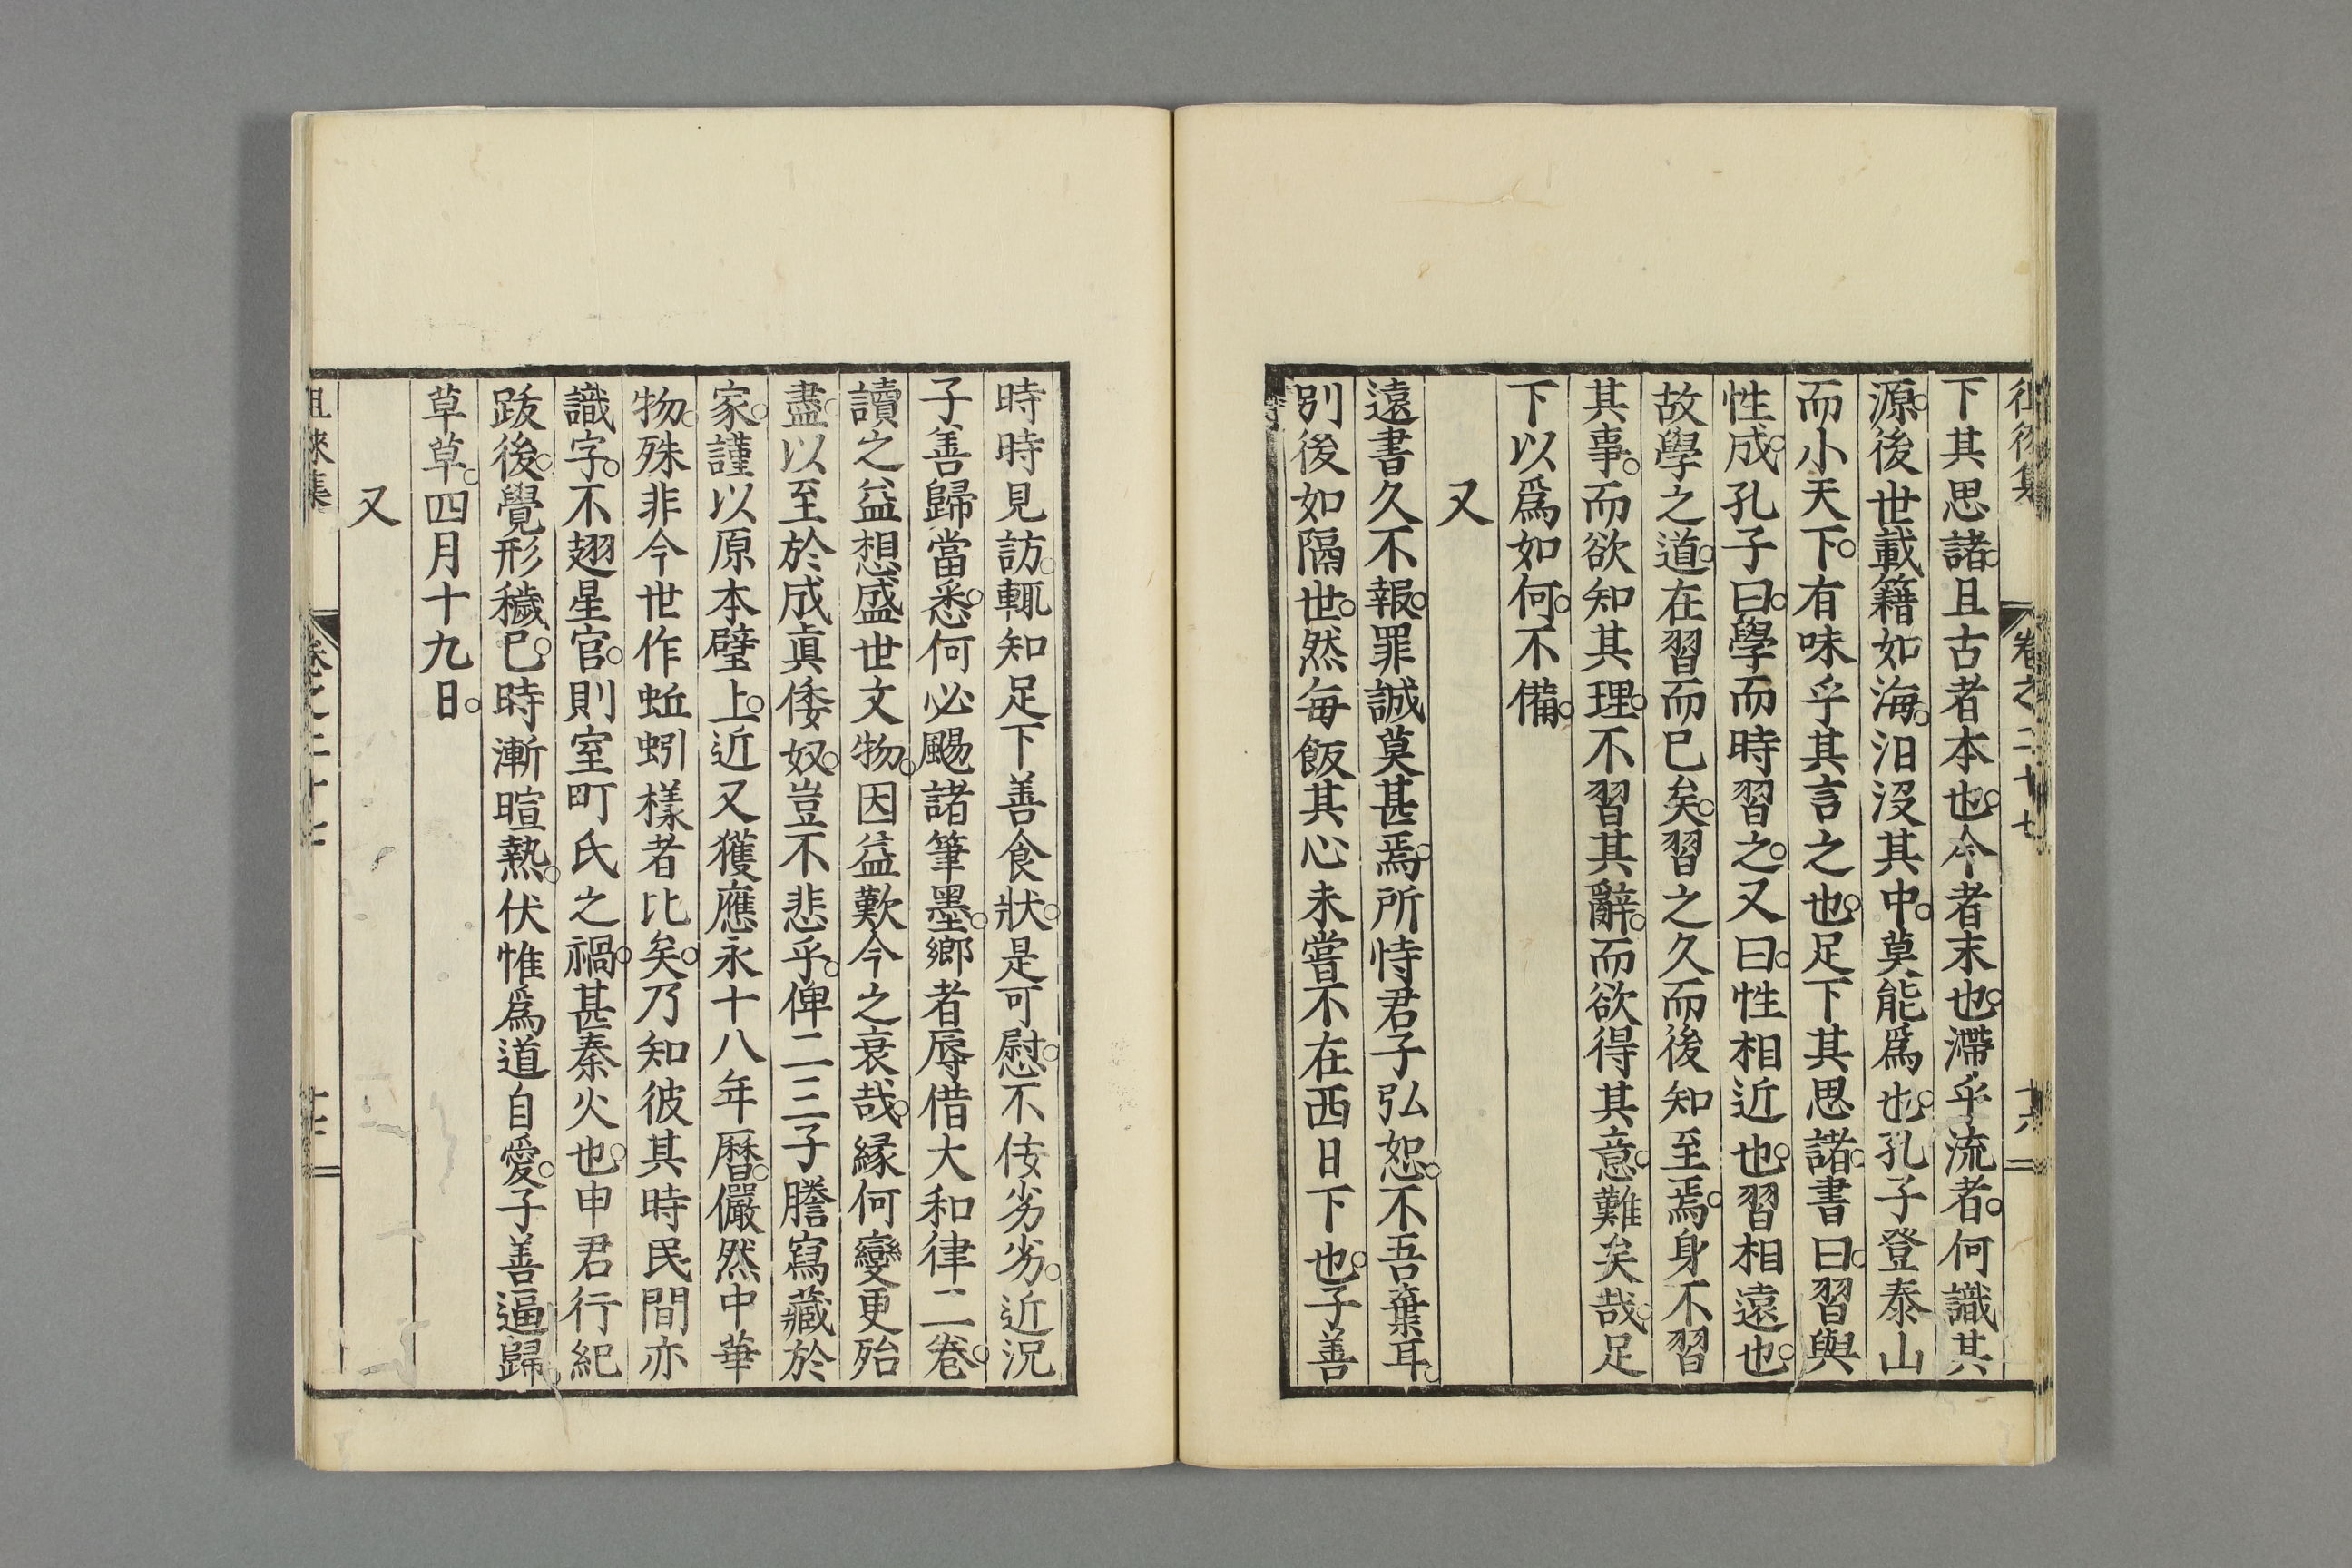 徂徠集　卷之二十七　十六
下其思諸。且古者本也。今者末也。滯乎流者。何識其
源。後世載籍如海。汨沒其中。莫能爲也。孔子登泰山
而小天下。有味乎其言之也。足下其思諸。書曰。習與
性成。孔子曰。學而時習之。又曰。性相近也。習相遠也。
故學之道。在習而已矣。習之久而後知至焉。身不習
其事。而欲知其理。不習其辭。而欲得其意。難矣哉。足
下以爲如何。不備。
又
遠書久不報。罪誠莫甚焉。所恃君子弘恕。不吾棄耳。
別後如隔世。然每飯其心未嘗不在西日下也。子善
時時見訪。輒知足下善食狀。是可慰。不佞劣劣。近況
子善歸當悉。何必颺諸筆墨。鄉者辱借大和律二卷。
讀之益想盛世文物。因益歎今之衰哉。緣何變更殆
盡。以至於成眞倭奴。豈不悲乎。俾二三子謄寫藏於
家。謹以原本璧上。近又獲應永十八年曆。儼然中華
物。殊非今世作蚯蚓樣者比矣。乃知彼其時民間亦
識字。不翅星官。則室町氏之禍。甚秦火也。申君行紀
跋後。覺形穢已。時漸暄熱。伏惟爲道自愛。子善逼歸。
草草。四月十九日。
又
徂徠集　卷之二十七　十七